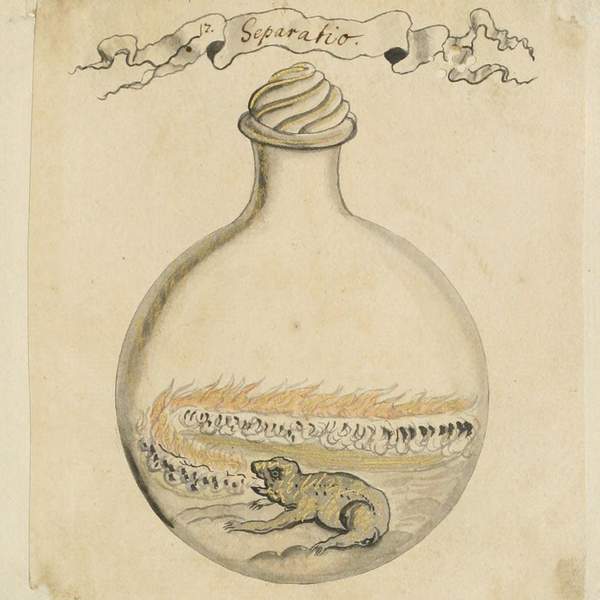 17. Separatio.